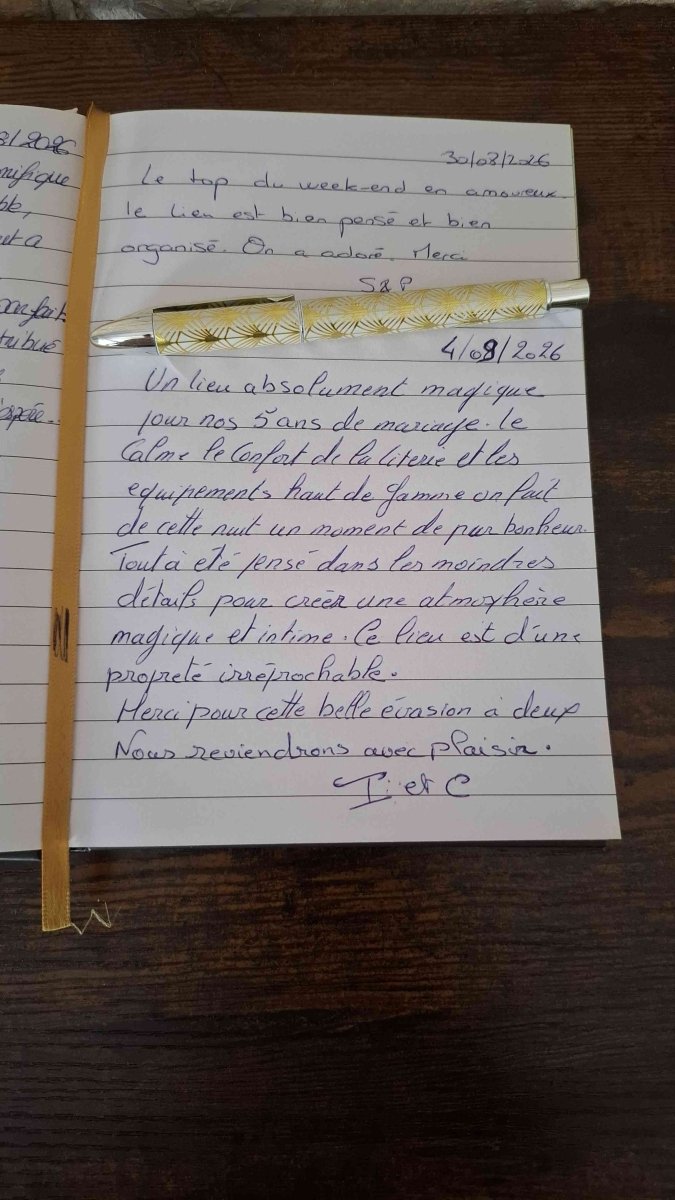 8/2026
nifique
ble,
et a
parfait
tribué
30/08/2026
Le top du week-end en amoureux.
le lieu est bien pensé et bien
organisé. On a adoré. Merci
S&P
4/09/2026
Un lieu absolument magique
pour nos 5 ans de mariage. le
Calme le Confort de la literie et les
equipements haut de gamme on fait
de cette nuit un moment de pur bonheur.
Tout à été pensé dans les moindres
détails pour créer une atmosphère
magique et intime. Ce lieu est d'une
propreté irréprochable.
Merci pour cette belle évasion à deux
Nous reviendrons avec plaisir.
I. et C